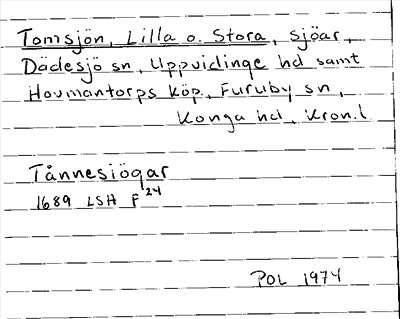 Tomsjön, Lilla o. Stora, sjöar,
Dädesjö sn, Uppvidinge hd samt
Hovmantorps köp., Furuby sn,
Konga hd, Kron.l
Tånnesiögar
1689 LSH F 24
POL 1974